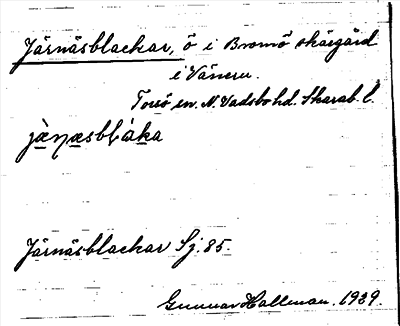 Järnäsblackar, ö i Bromö skärgård
i Vänern.
Torsö sn. N. Vadsbo hd. Skarab. l.
jà̱ṉæsbḷàka
Järnäsblackar Sj. 85.
Gunnar Hallman. 1939.